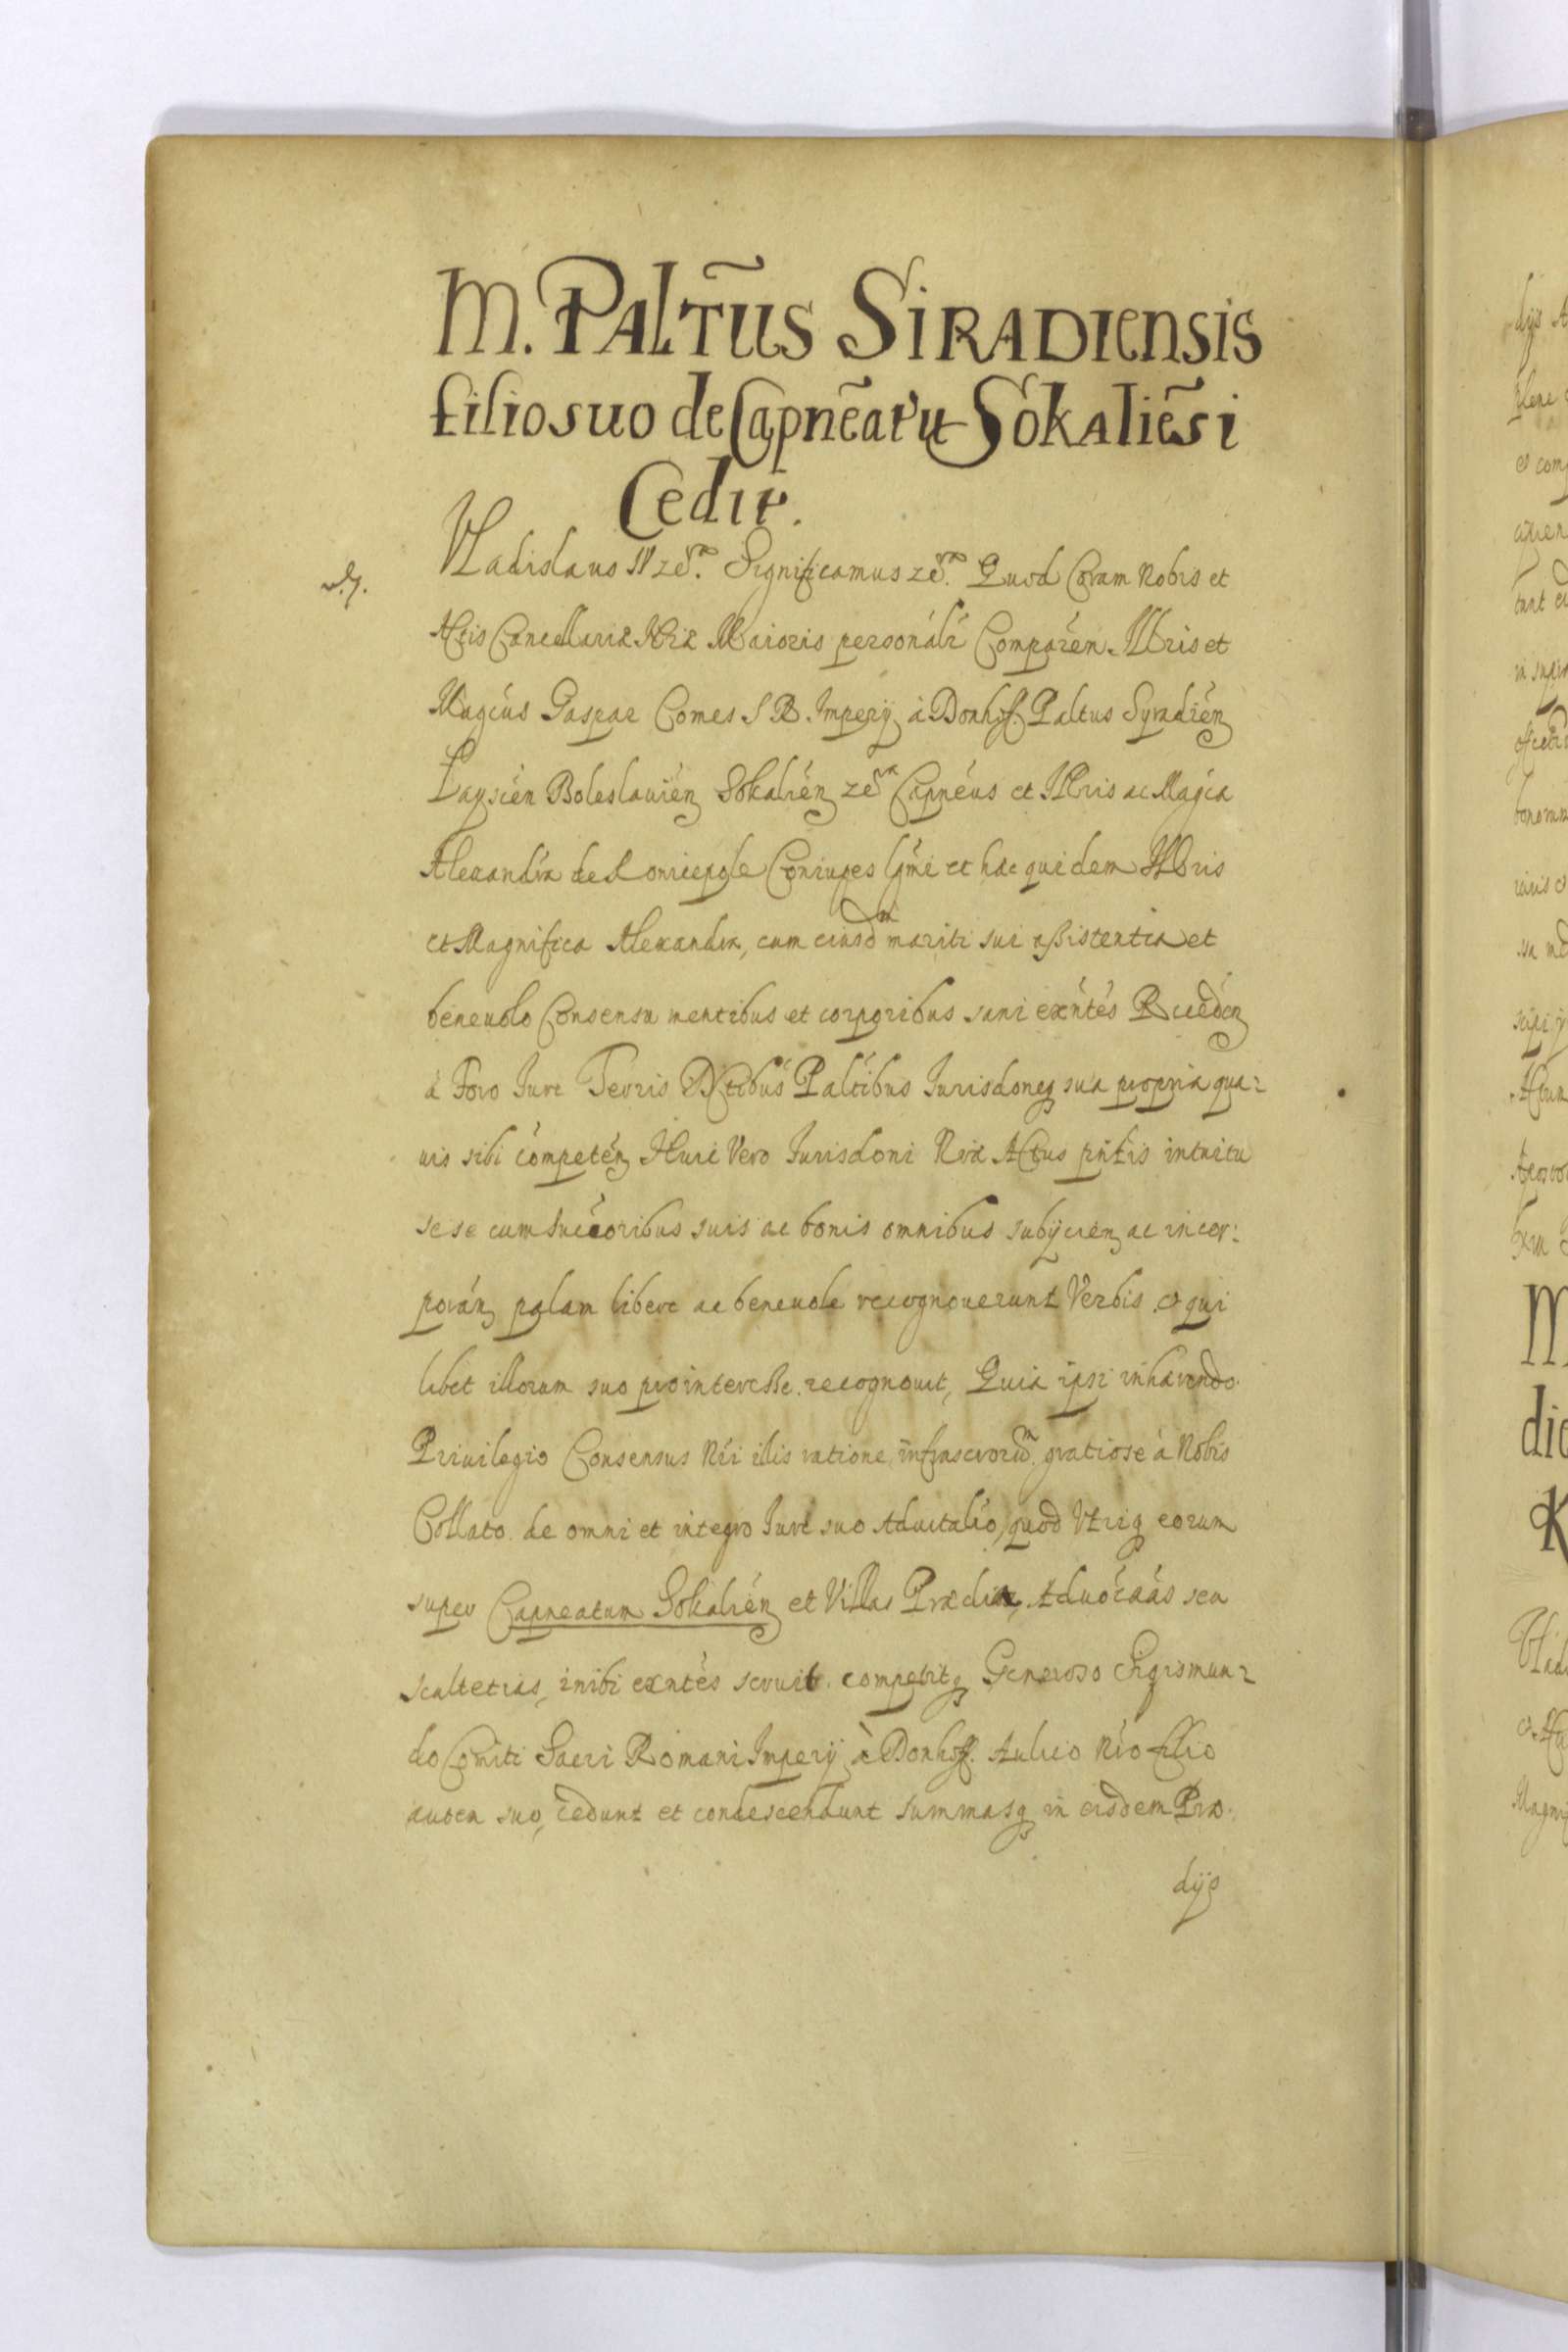 M. PALTŨS SIRADIENSIS
filio suo de Capnẽatu SokAliẽsi
Cedit.
Vladislaus IV ze͠. Significamus ze͠. Quod Coram Nobis et
Actis Cancellariæ Nr̃æ Maioris personalr̃ Comparen. Illris et
Magcus Gaspar Comes S R. Imperij à Donhoff. Paltus Syradien
Boleslauien Sokalien ze͠ Capneus et Illris ac Magca
Alexandra de Koniecpole Coniuges lgmi et hæc quidem Illris
et Magnifica Alexandra, cum eiusdm mariti sui assistentia et
beneuolo Consensu mentibus et corporibus sani exntes Receden
à Foro Jure Terris Dictibus Paltibus Jurisdoneq sua propria qua-
uis sibi competen Huic Vero Jurisdoni Nræ Actus pntis intuitu
se se cum succoribus suis ac bonis omnibus subijcien ac incor:
poran palam libere ac beneuole recognouerunt Verbis. et qui
libet illorum suo pro interesse recognouit, Quia ipsi inhærendo
Priuilegio Consensus Nri illis ratione infrascrorũ gratiose à Nobis
Collato de omni et integro Jure suo Aduitalio, quod Vtriq eorum
super Capneatum Sokalien et Villas Prædia, Aduocaas seu
scultetias, inibi exntes seruit. competitq Generoso Sigismun-
do Comiti Sacri Romani Imperij à Donhoff. Aulico Nro filio
autem suo, cedunt et condescendunt summasq in eisdem Præ
dijs